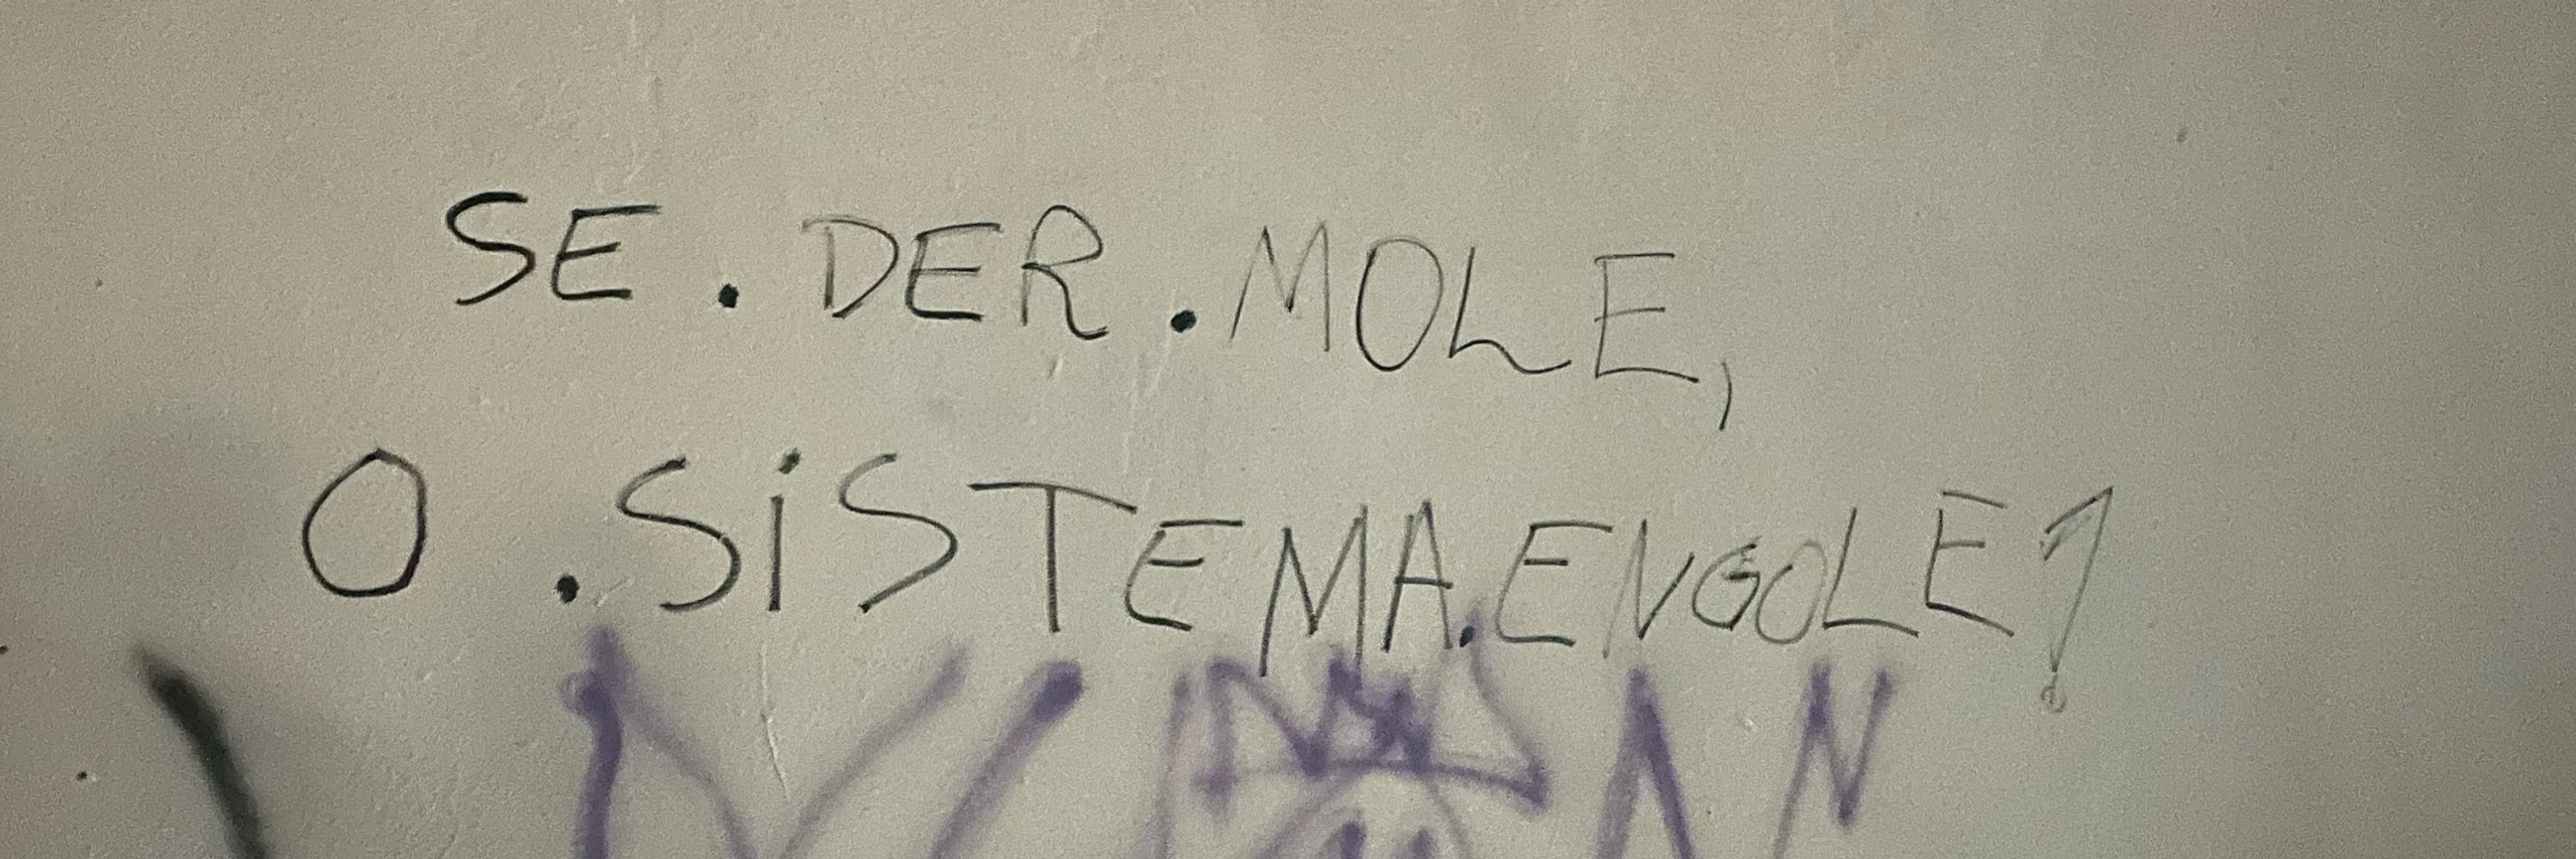 SE . DER . MOLE,
O . SiSTEMA . ENGOLE!